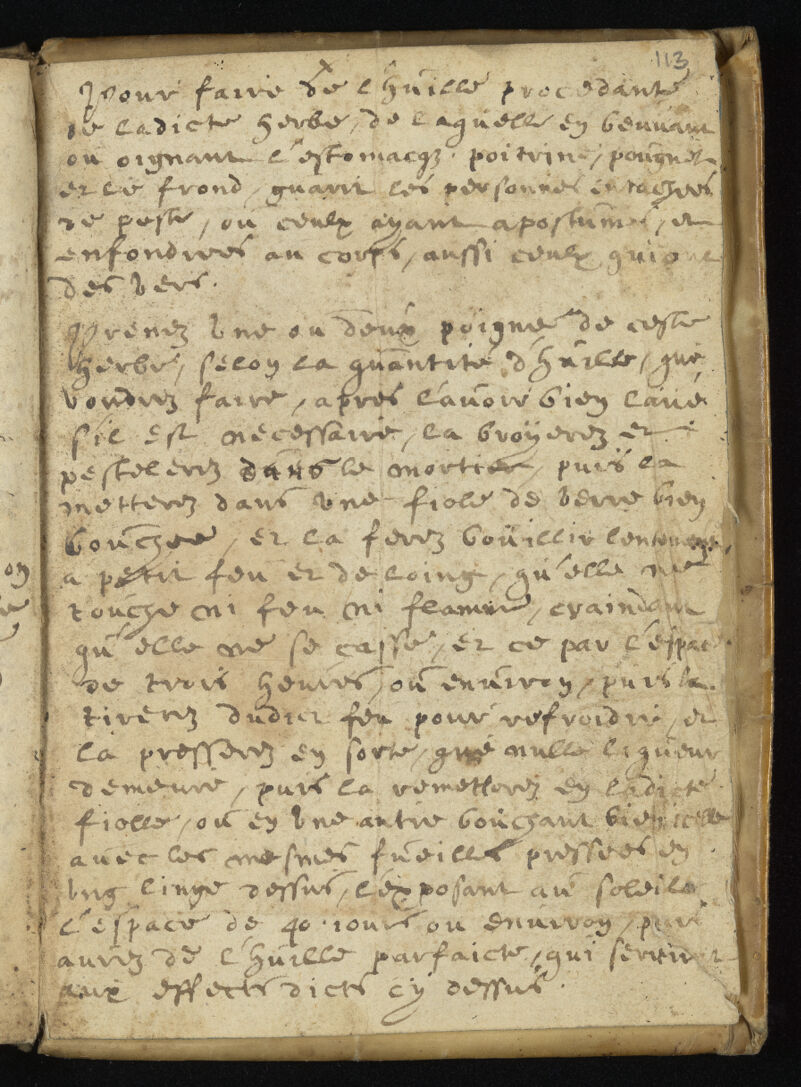 113
Pour faire de l'huille procedante
de ladicte herbe, de laquelle en beuvant
ou oignant l'estomacq, poitrine, pougnet
et le frond, guarit les personnes entachees
de peste, ou ceulx ayant apostumes, et
enfondrees au corps, aussi ceulx qui ont
des vers.
Prenez une ou deux poignee de ceste
herbe, selon la quantite d'huille, que
voudrez faire, apres l'avoir bien lavé
s'il est necessaire, la broyerez et
pestelerez dans le mortier, puis la
metterez dans une fiole de verre bien
bouchee, et la ferez bouillir lentement,
a petit feu et de loing, qu'elle ne
touche ni feu ni flamme, craindant
qu'elle ne se casse, et ce par l'espace
de trois heures, ou environ, puis la
tirerez dudict feu pour refroidir, et
la presserez en sorte, que nulle liqueur
demeure, puis la remetterez en ladicte
fiolle, ou en une autre bouchant bien icelle
avec les mesmes fueilles pressees en
ung linge dessus, l'exposant au soleile
l'espace de 40 iours ou environ, puis
aurez de l'huille parfaicte, qui servira
aux effects dicts cy dessus.
on